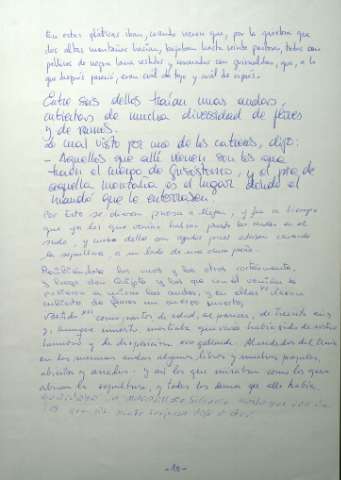 En estas pláticas iban, cuando vieron que, por la quiebra que
dos altas montañas hacían, bajaban hasta veinte pastores, todos con
pellicos de negra lana vestidos y coronados con guirnaldas, que, a lo
que después pareció, eran cuál de tejo y cuál de ciprés.
Entre seis dellos traían unas andas,
cubiertas de mucha diversidad de flores
y de ramos.
Lo cual visto por uno de los cabreros, dijo:
- Aquellos que allí vienen son los que
traen el cuerpo de Grisóstomo, y el pie de
aquella montaña es el lugar donde él
mandó que le enterrasen.
Por esto se dieron priesa a llegar, y fue a tiempo
que ya los que venían habían puesto las andas en el
suelo, y cuatro dellos con agudos picos estaban cavando
la sepultura, a un lado de una dura peña.
Recibiéronse los unos y los otros cortésmente,
y luego don Quijote y los que con él venían se
pusieron a mirar las andas, y en ellas vieron
cubierto de flores un cuerpo muerto,
vestido como pastor, de edad, al parecer, de treinta años
y, aunque muerto, mostraba que vivo había sido de rostro
hermoso y de disposición gallarda. Alrededor del tenía
en las mesmas andas algunos libros y muchos papeles,
abiertos y cerrados. y así los que miraban como los que
abrían la sepultura, y todos los demás que allí había
guardaban un maravilloso silencio
-10-